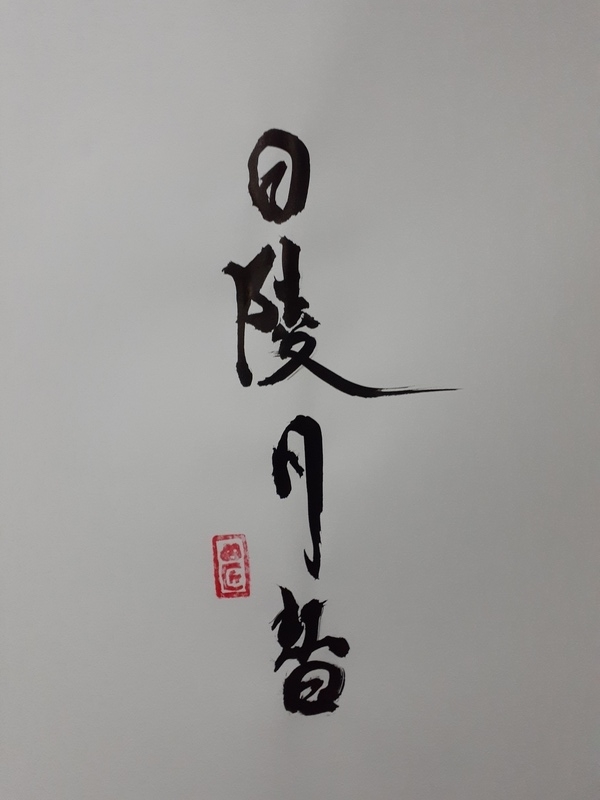 日陵月替